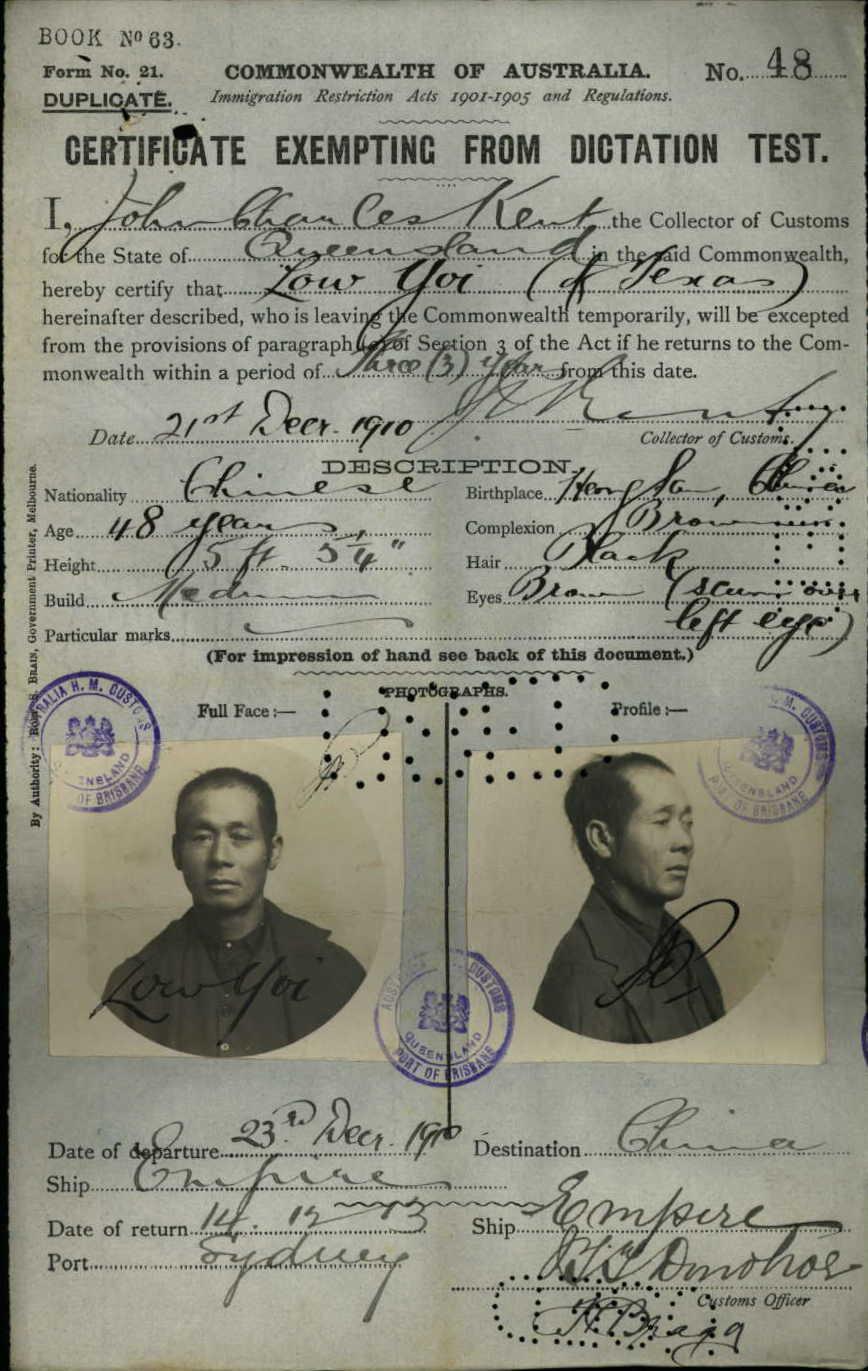 BOOK No 63.
Form No. 21. COMMONWEALTH OF AUSTRALIA. No. 48
DUPLICATE. Immigration Restriction Acts 1901-1905 and Regulations.
CERTIFICATE EXEMPTING FROM DICTATION TEST.
I, John Charles Kent the Collector of Customs
for the State of Queensland in the said Commonwealth,
hereby certify that Low Yoi (of Texas)
hereinafter described, who is leaving the Commonwealth temporarily, will be excepted
from the provisions of paragraph of Section 3 of the Act if he returns to the Com-
monwealth within a period of three (3) years from this date.
Date 21st Decr. 1910 Kent
Collector of Customs.
DESCRIPTION.
Nationality Chinese Birthplace China
Age 48 years Complexion Brown
Height 5 ft. 5¼" Hair Black
Build Medium Eyes Brown (scum over
left eye)
Particular marks
(For impression of hand see back of this document.)
PHOTOGRAPHS.
Full Face :— Profile :—
AUSTRALIA H. M. CUSTOMS
QUEENSLAND
PORT OF BRISBANE
H. M. CUSTOMS
QUEENSLAND
PORT OF BRISBANE
Low Yoi
CUSTOMS
QUEENSLAND
PORT OF BRISBANE
Date of departure 23rd Decr. 1910 Destination China
Ship Empire
Date of return 14. 12 13 Ship Empire
Port Sydney Donohoe
Customs Officer
H Bragg
By Authority: ROBT. S. BRAIN, Government Printer, Melbourne.